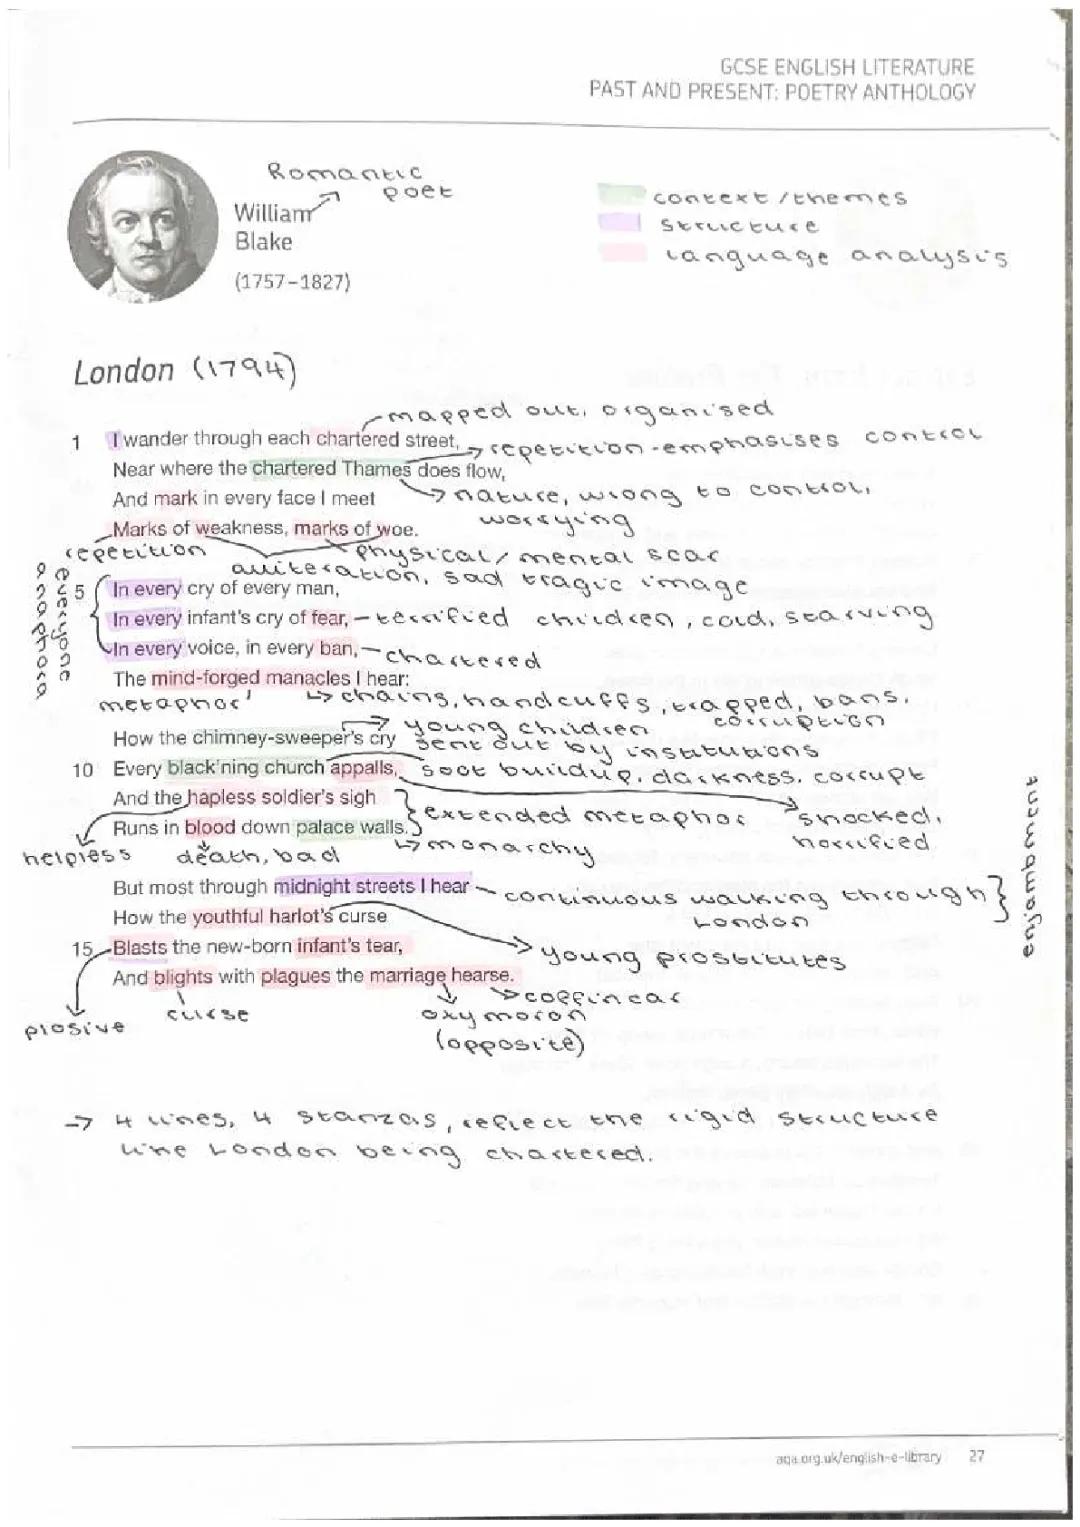 GCSE ENGLISH LITERATURE
PAST AND PRESENT: POETRY ANTHOLOGY
Romantic
poet
William
Blake
(1757–1827)
context/themes
structure
language analysis
London (1794)
mapped out, organised
1 I wander through each chartered street,
repetition - emphasises control
Near where the chartered Thames does flow,
And mark in every face I meet
nature, wrong to control,
worrying
Marks of weakness, marks of woe.
repetition
physical/mental scar
alliteration, sad tragic image
anaphora
everyone
5 In every cry of every man,
In every infant's cry of fear, – terrified children, cold, starving
In every voice, in every ban, – chartered
The mind-forged manacles I hear:
metaphor
chains, handcuffs, trapped, bans,
corruption
young children
How the chimney-sweeper's cry sent out by institutions
10 Every black'ning church appalls, soot buildup, darkness, corrupt
And the hapless soldier's sigh
extended metaphor
shocked,
horrified
Runs in blood down palace walls.
helpless
death, bad
monarchy
But most through midnight streets I hear – continuous walking through
London
enjambment
How the youthful harlot's curse
15 Blasts the new-born infant's tear,
young prostitutes
And blights with plagues the marriage hearse.
plosive
curse
coffin car
oxymoron
(opposite)
→ 4 lines, 4 stanzas, reflect the rigid structure
like London being chartered.
aqa.org.uk/english-e-library 27